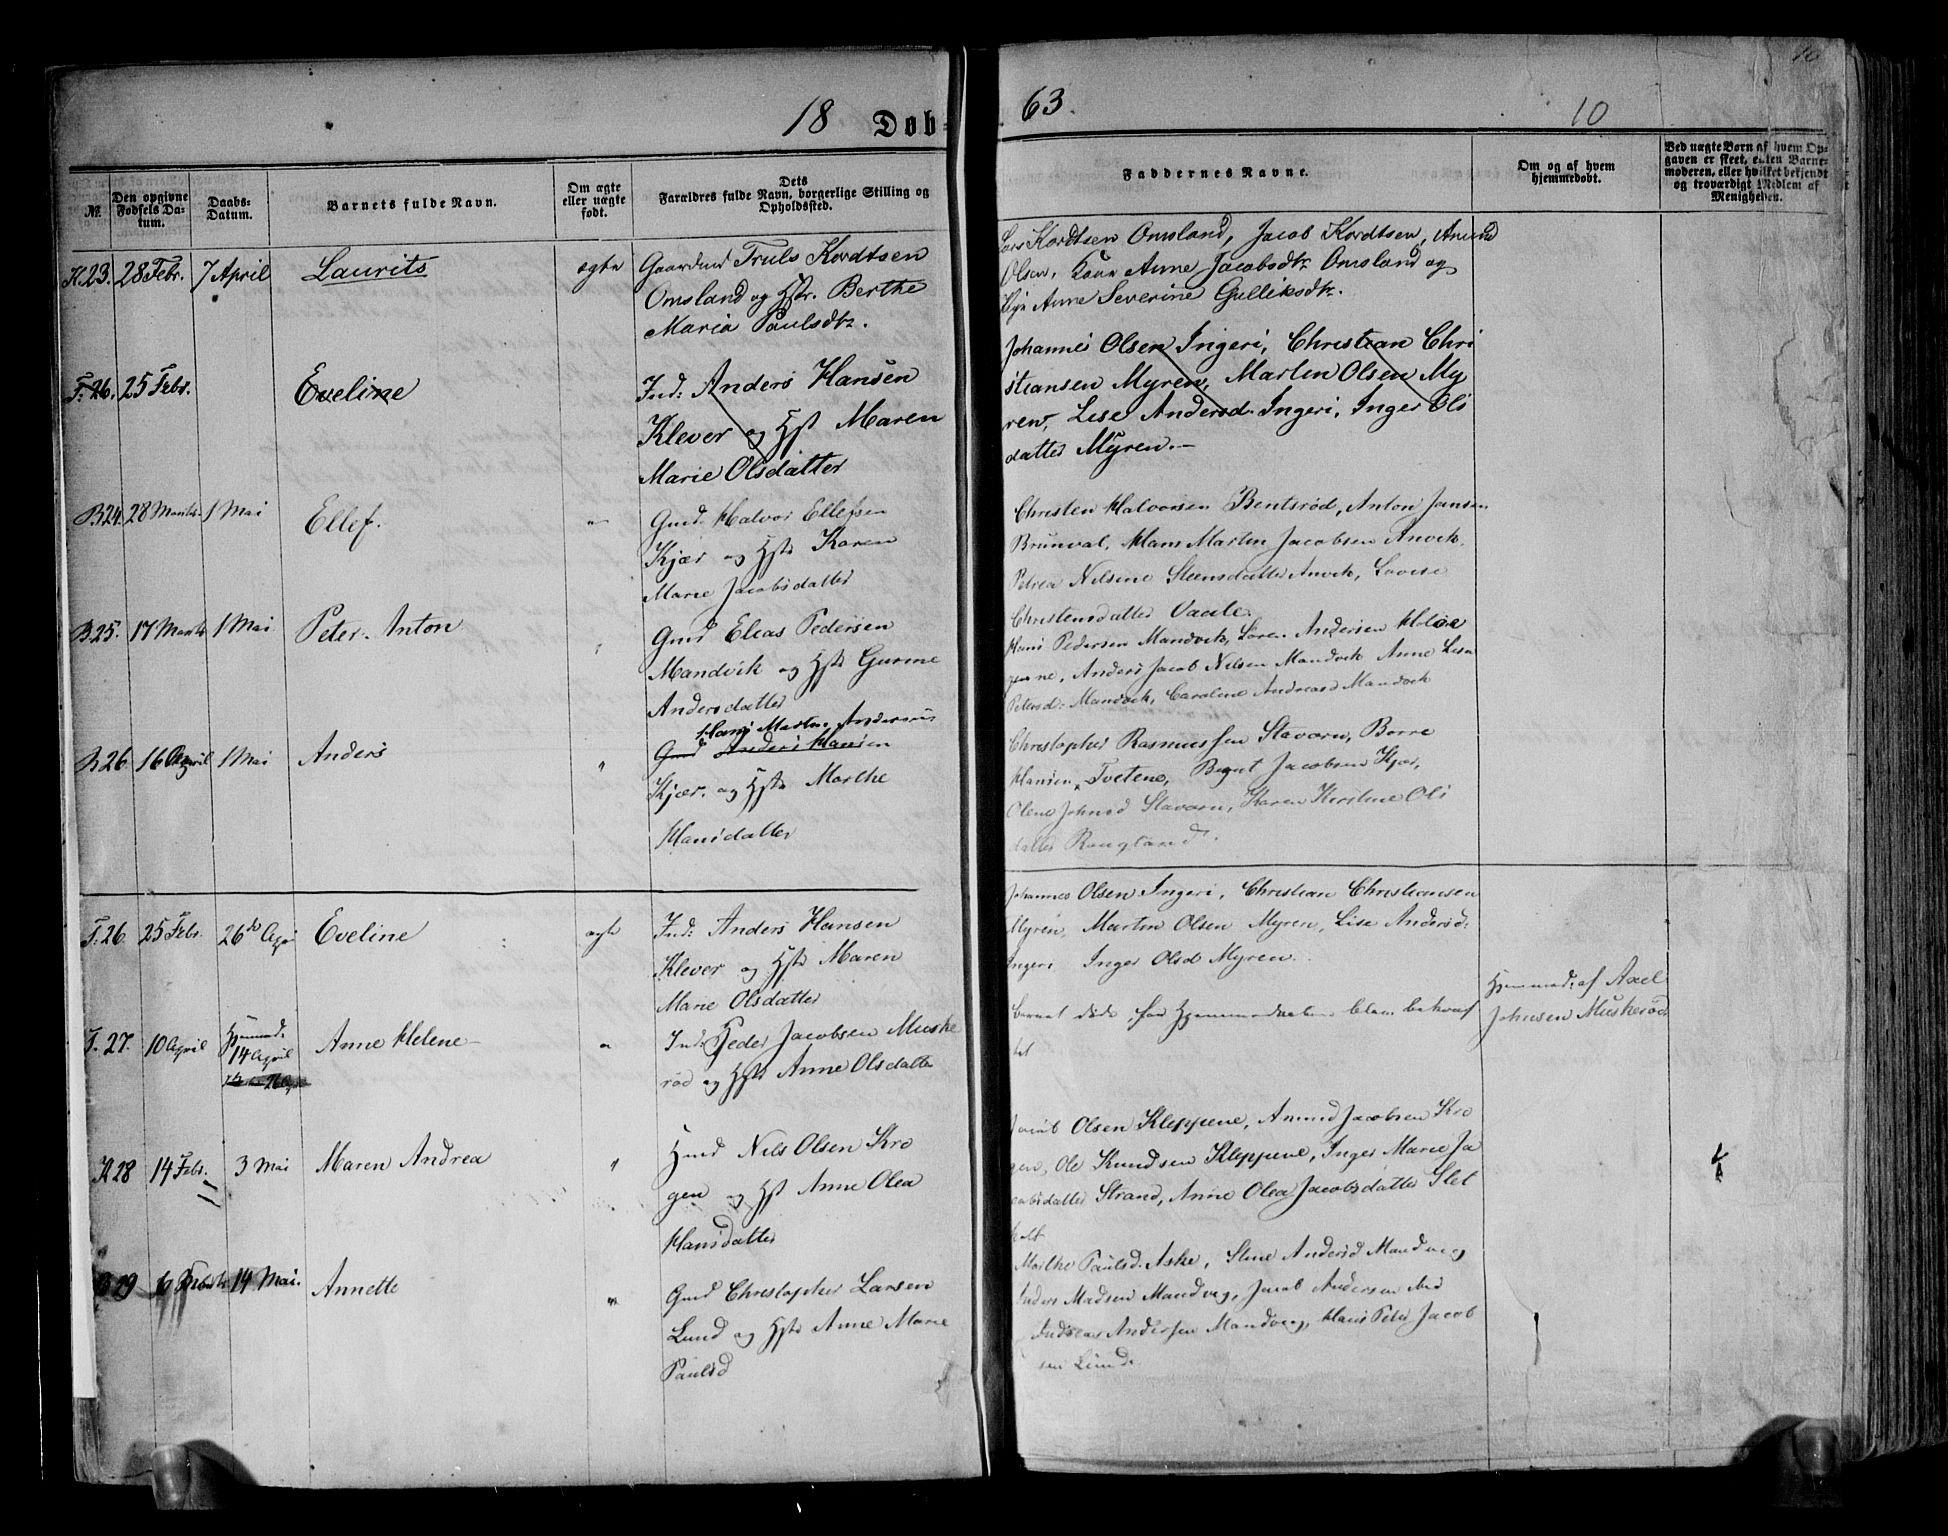 18 Døb-
63.
10
10
№.
Den opgivne Fødsels Datum.
Daabs-Datum.
Barnets fulde Navn.
Om ægte eller uægte født.
Dets Forældres fulde Navn, borgerlige Stilling og Opholdssted.
Faddernes Navne.
Om og af hvem hjemmedøbt.
Ved uægte Børn af hvem Opgaven er skeet, enten Barnemoderen, eller hvilket bekjendt og troværdigt Medlem af Menigheden.
K.23. 28 Febr. 7 April Laurits ægte Gaardmd Truls Kordtsen
Omsland og Hstr. Berthe
Maria Paulsdtr.
Lars Kordtsen Omsland, Jacob Kordtsen, Amund
Olsen, Kone Anne Jacobsdtr Omsland og
Pige Anne Severine Gulliksdtr.
T.26. 25 Febr. Eveline Ind: Anders Hansen
Klever og Hst Maren
Marie Olsdatter
Johannes Olsen Ingeri, Christian Chri
stiansen Myren, Martin Olsen My
ren, Lise Andersd. Ingeri, Inger Ols
datter Myren.—
B24. 28 Marts 1 Mai Ellef. " Gmd Halvor Ellefsen
Kjær og Hst Karen
Marie Jacobsdatter
Christen Halvorsen Bentsrød, Anton Jansen
Brunval, Hans Martin Jacobsen Anvik.
Petrea Nilsine Steensdatter Anvik, Lovise
Christensdatter Vaale.
B25. 17 Marts 1 Mai Peter Anton " Gmd Elias Pedersen
Mandvik og Hst Gurine
Andersdatter
Hans Pedersen Mandvik, Søren Andersen
Anders Jacob Nilsen Mandvik Anne Lisa
Petersd. Mandvik, Caroline Andreasd Mandvik
B26 16 April 1 Mai Anders " Hans Martin Andersen
Gmd Anders Hansen
Kjær. og Hst Marthe
Hansdatter
Christopher Rasmussen Staværn, Borre
Hansen Tvetene, Bernt Jacobsen Kjær,
Olene Johnsd Staværn, Karen Kirstine Ols
datter Rougland.
T.26. 25 Febr. 26de April Eveline ægte Ind: Anders Hansen
Klever og Hst Maren
Marie Olsdatter
Johannes Olsen Ingeri, Christian Christiansen
Myren, Martin Olsen Myren, Lise Andersd.
Ingeri Inger Olsd Myren.
T.27. 10 April Hjemmed. 14 April Anne Helene " Ind: Peder Jacobsen Muske
rød og Hst Anne Olsdatter
Barnet døde, før Hjemmedaaben blev bekræf
tet
Hjemmed: af Axel
Johnsen Muskerød
K28 14 Febr. 3 Mai Maren Andrea " Hmd Nils Olsen Kro
gen og Hst Anne Olea
Hansdatter
Jacob Olsen Kleppene, Amund Jacobsen Kro
gen, Ole Knudsen Kleppene, Inger Marie Ja
cobsdatter Strand, Anne Olea Jacobsdatter Slet
holt
B29 6 Marts 14 Mai. Annette " Gmd Christopher Larsen
Lund og Hst Anne Marie
Paulsd
Marthe Paulsd. Aske, Stine Andersd Mandvig
Anders Madsen Mandvig, Jacob Andersen
Andreas Andersen Mandvig, Hans Peter Jacob
sen Lund.